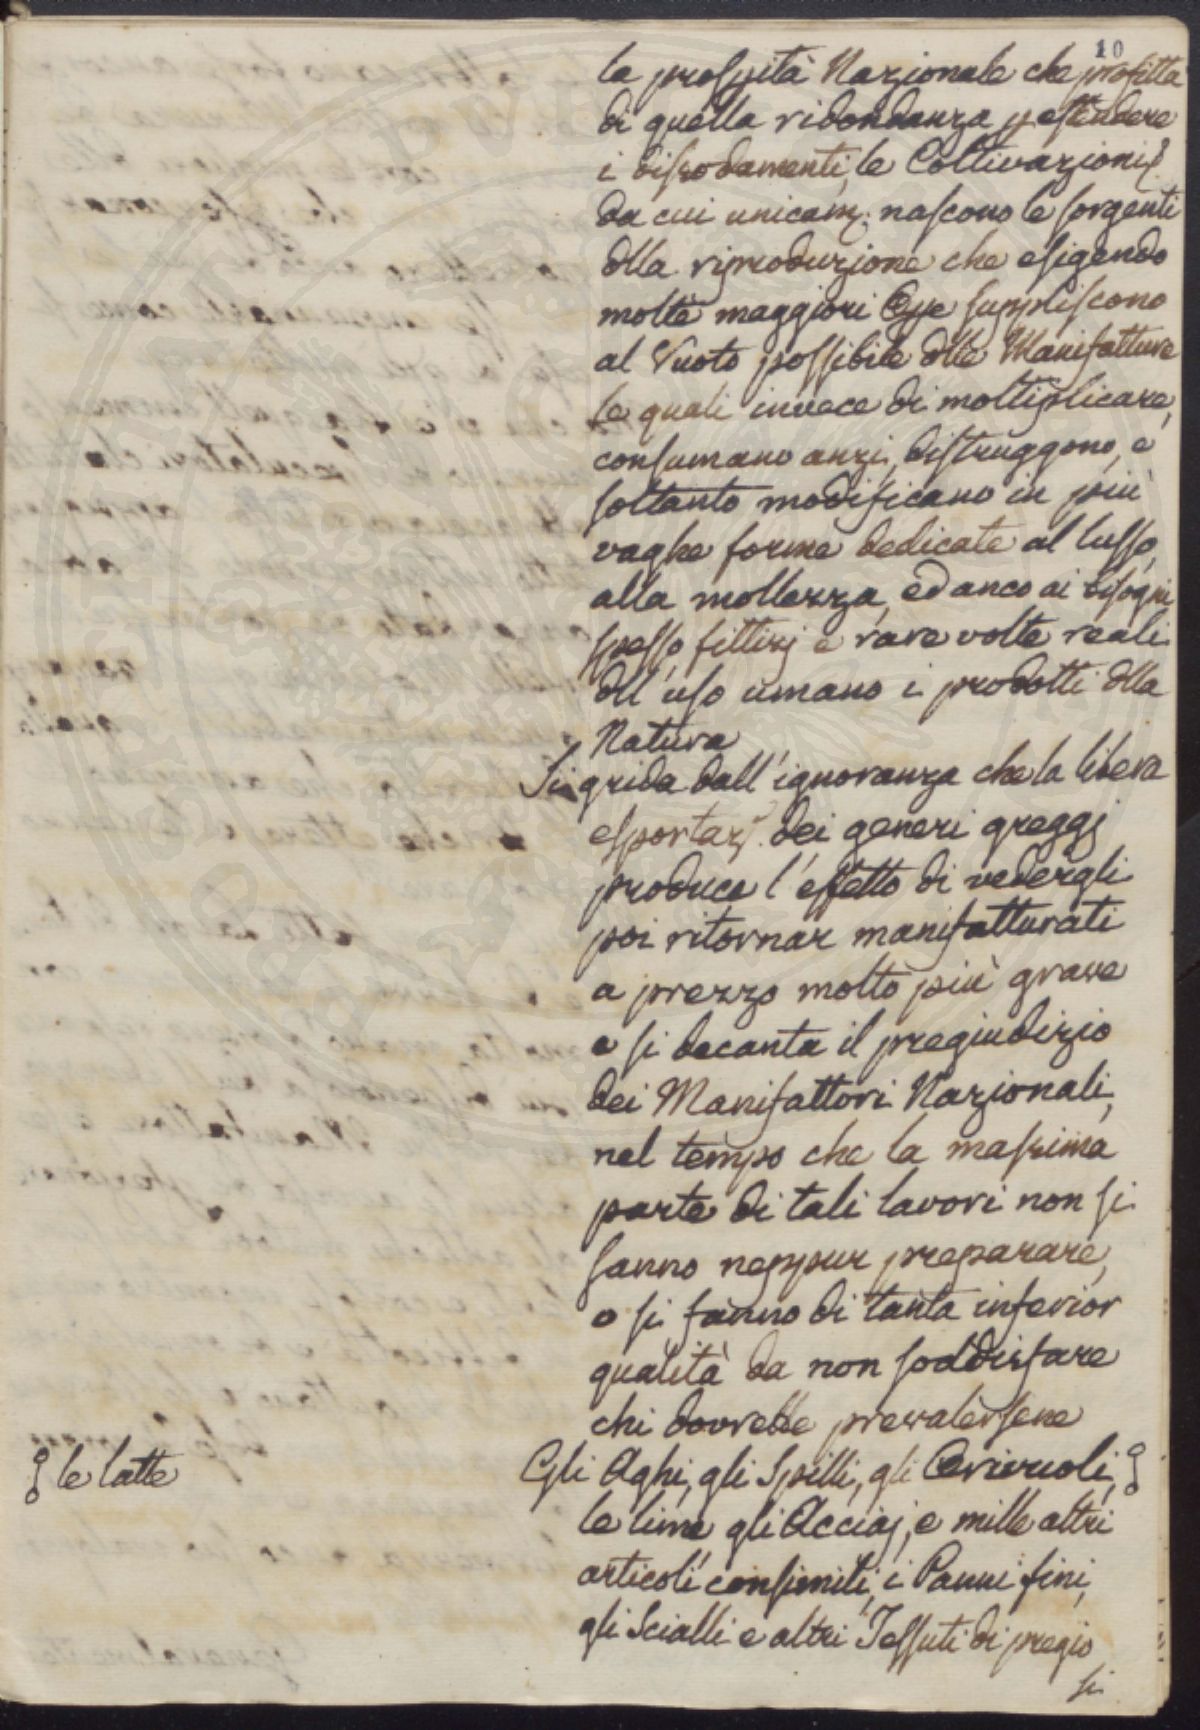 10
la prospità Nazionale che profitta
di quella ridondanza p estendere
i dissodamenti, le Coltivazioni
da cui unicam. nascono le sorgenti
dlla riproduzione che esigendo
molte maggiori Ope suppliscono
al Vuoto possibile dlle Manifatture
le quali invece di moltiplicare,
consumano anzi, distruggono, e
soltanto modificano in più
vaghe forme dedicate al lusso,
alla mollezza, ed anco ai bisogni
spesso fittizj e rare volte reali
dll'uso umano i prodotti dlla
Natura
Si grida dall'ignoranza che la libera
esportaz. dei generi greggj
produce l'effetto di vedergli
poi ritornar manifatturati
a prezzo molto più grave
e si decanta il pregiudizio
dei Manifattori Nazionali,
nel tempo che la massima
parte di tali lavori non si
sanno neppur preparare,
o si fanno di tanta inferior
qualità da non soddisfare
chi dovrebbe prevalersene
Gli Aghi, gli Spilli, gli Orivuoli,
le latte
le lime, gli Acciaj, e mille altri
articoli consimili, i Panni fini,
gli Scialli e altri Tessuti di pregio
si